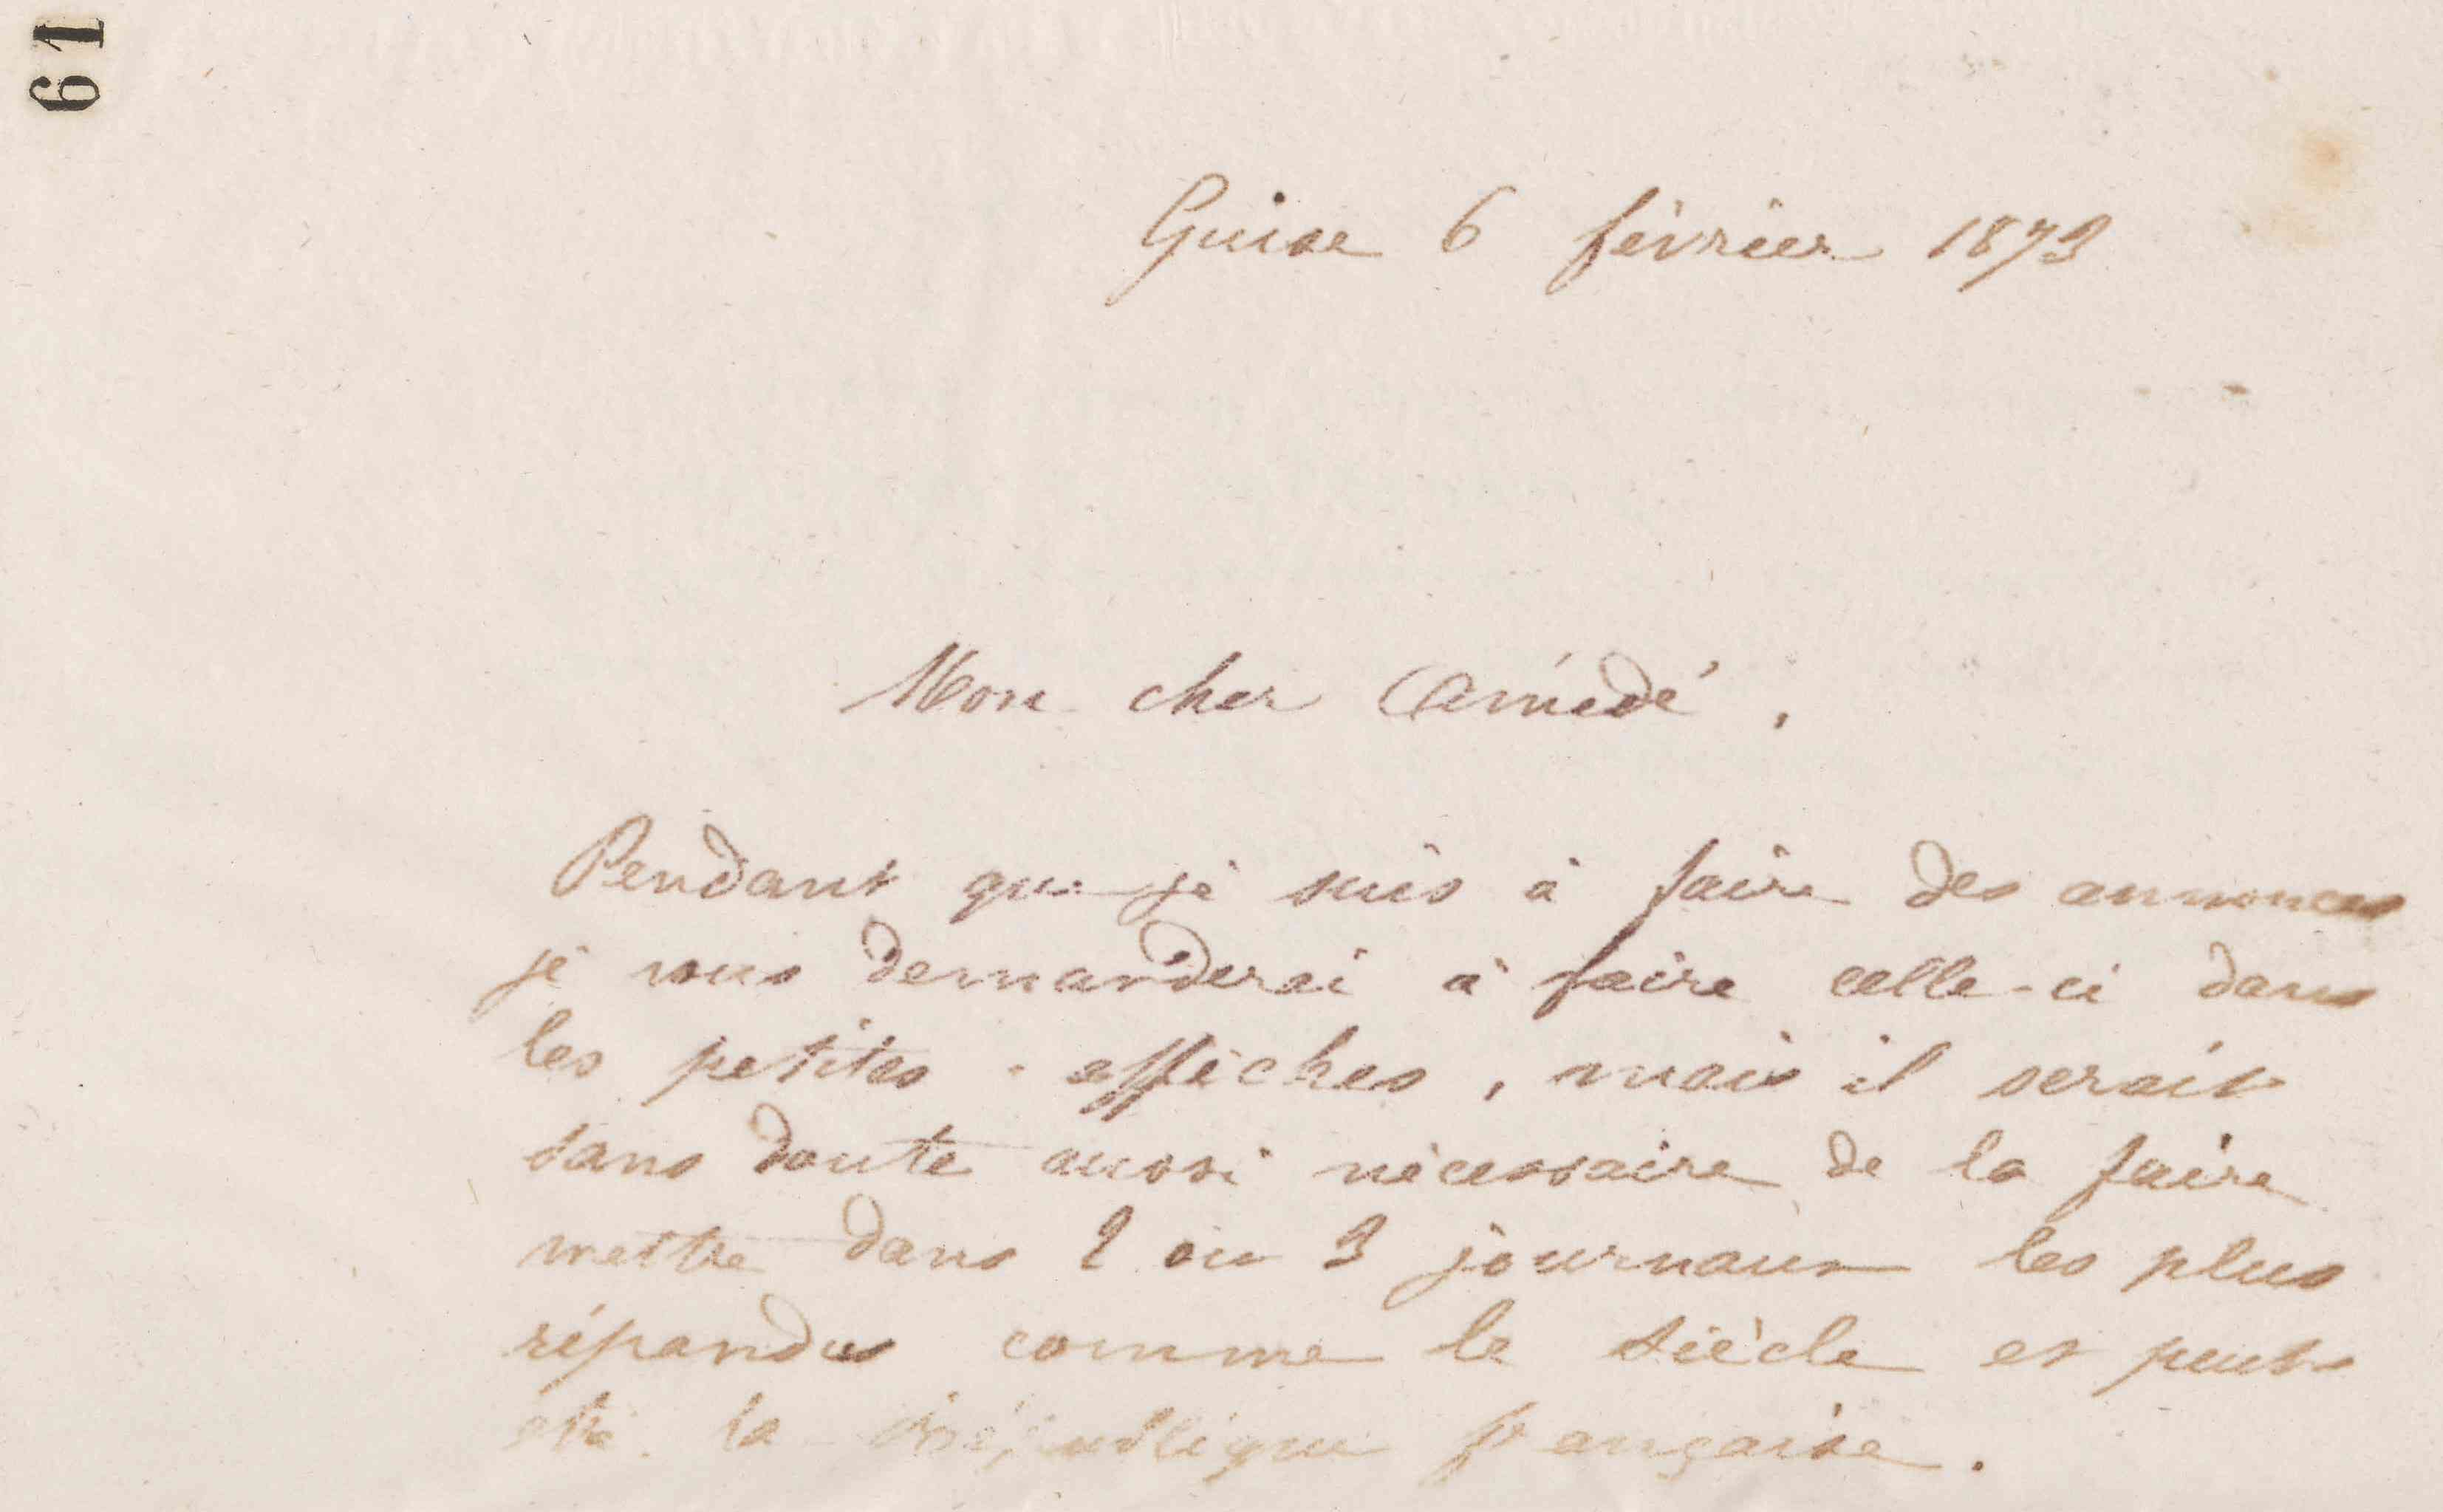 61
Guise 6 février 1873
Mon cher Amédé,
Pendant que je suis à faire des annonces
je vous demanderai à faire celle-ci dans
les petites-affiches, mais il serait
sans doute aussi nécessaire de la faire
mettre dans 2 ou 3 journaux les plus
répandus comme le siècle et peut-
être la République française.